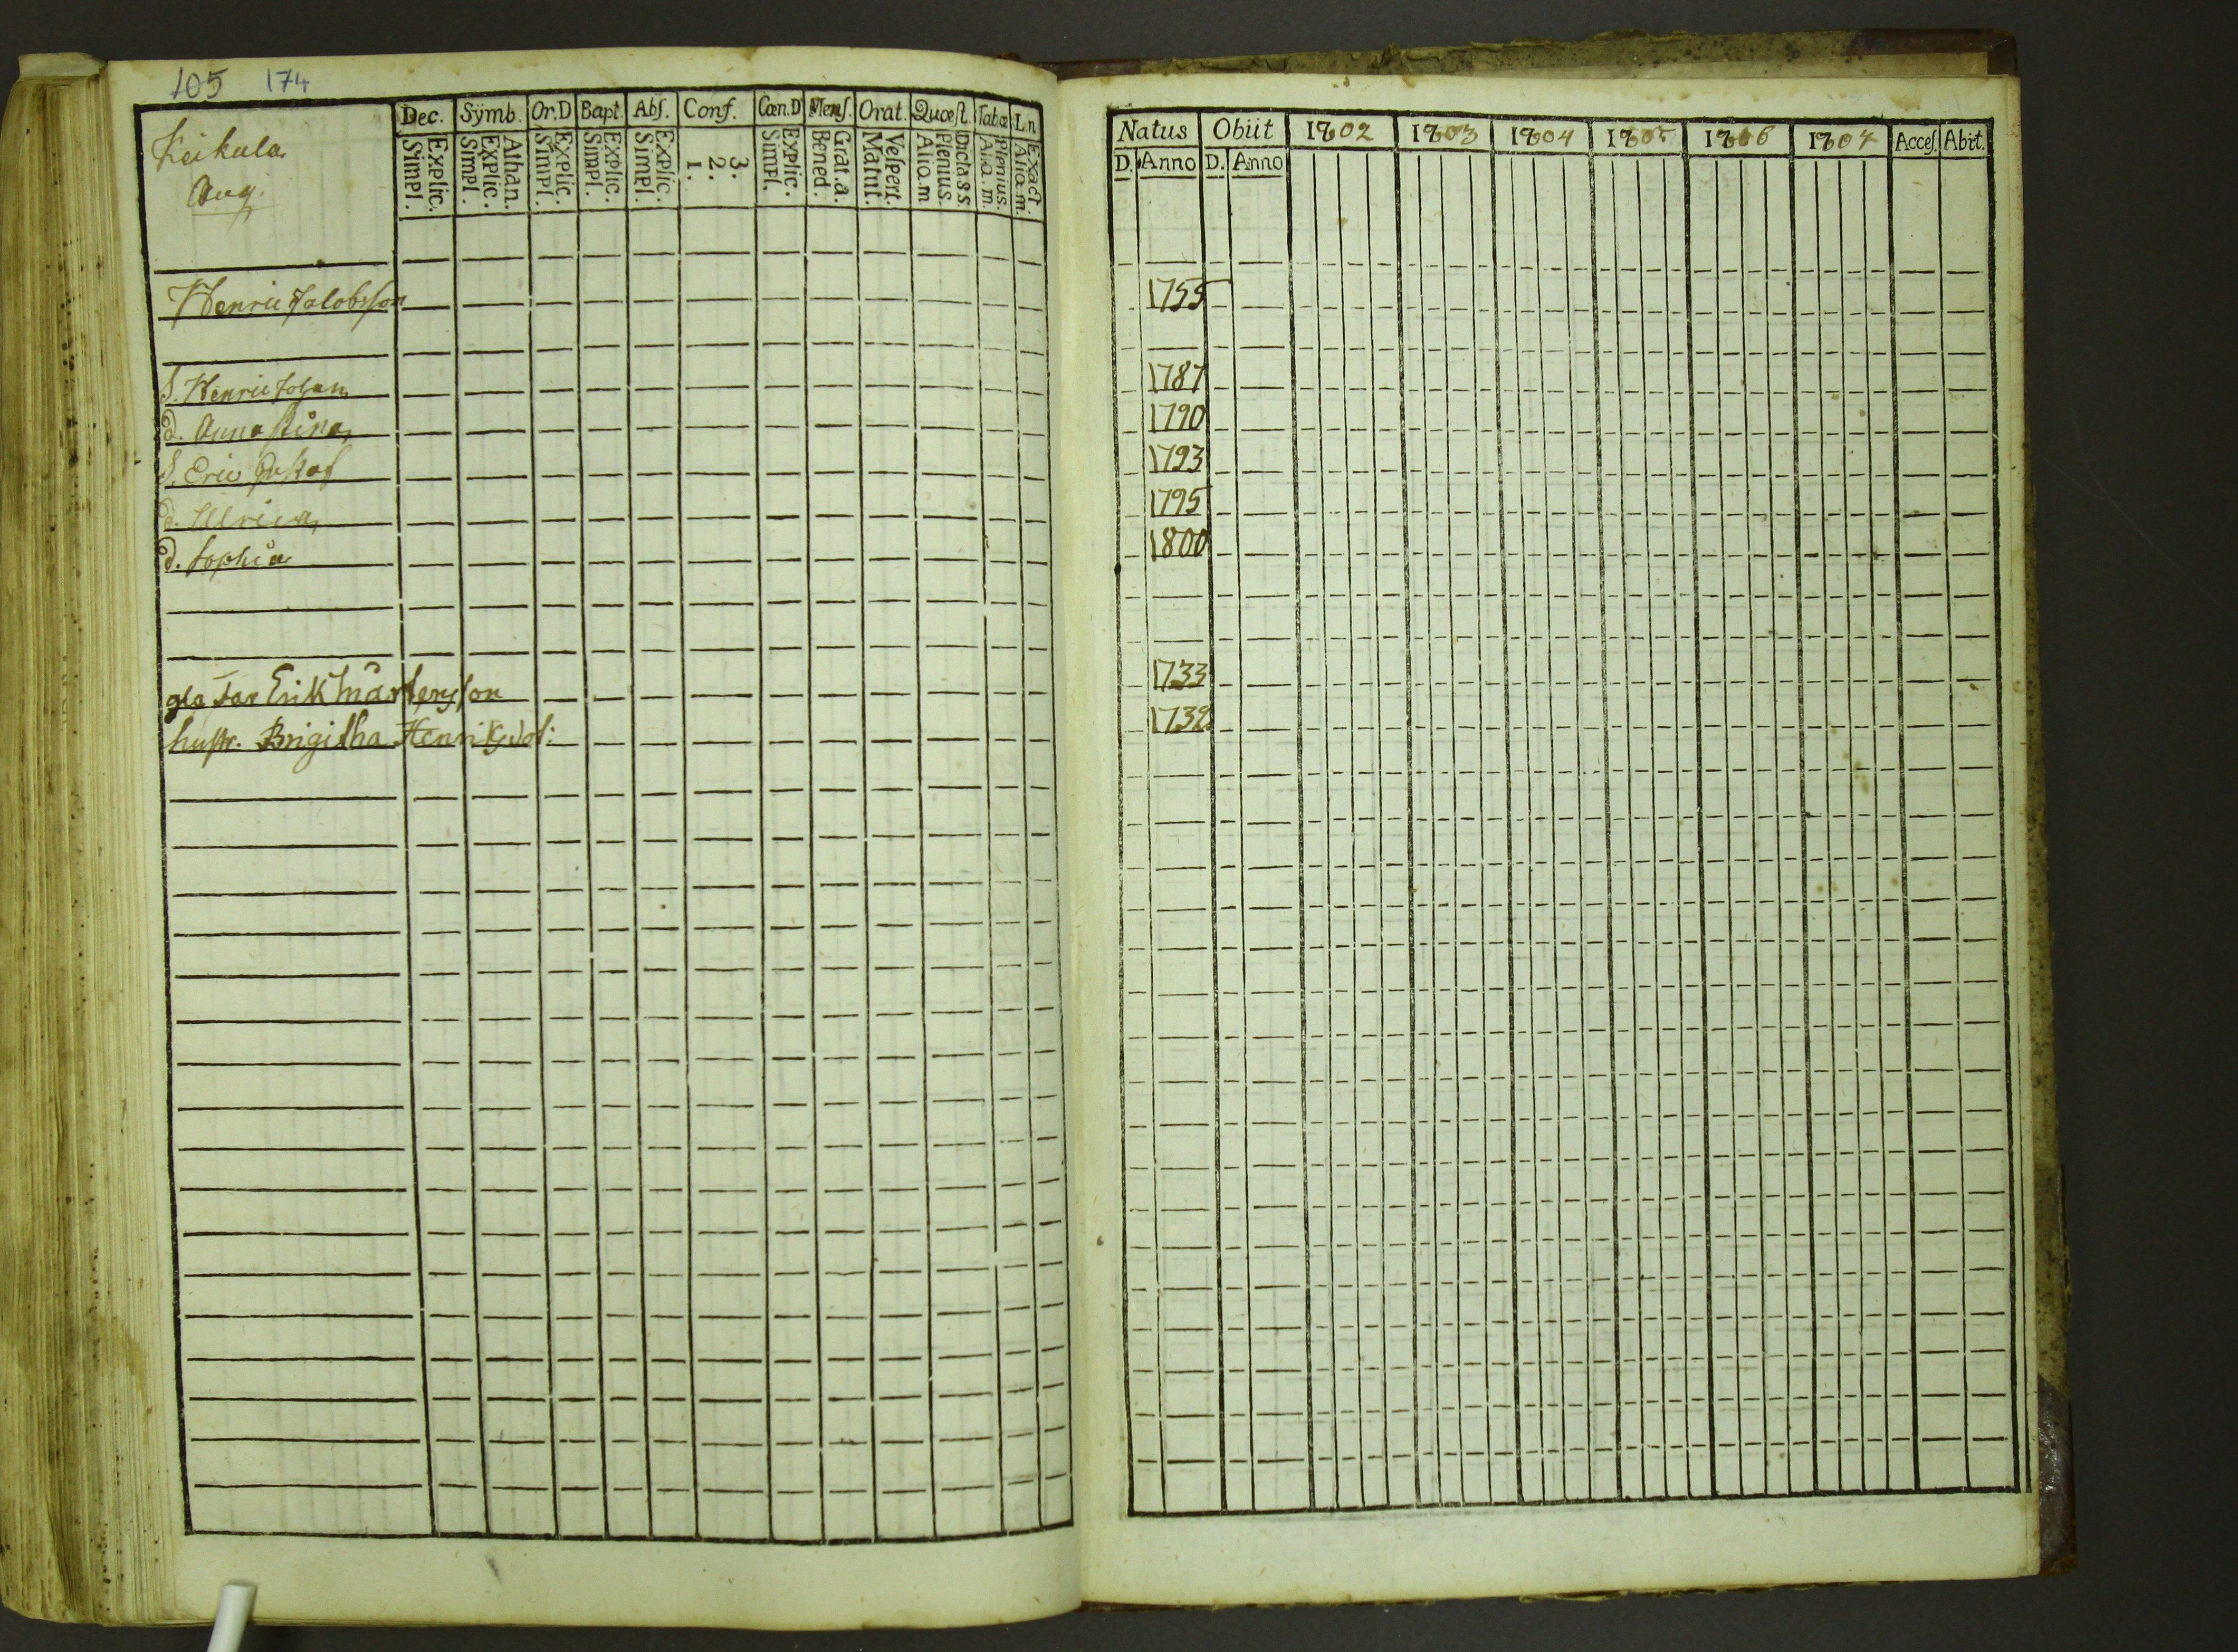 105 174
Dec. Sÿmb. Or.D Bapt. Abſ. Conf. Cœn.D Menſ. Orat. Quœſt. Tabœ L.n
Keikula
Aug.
Simpl. Explic. Simpl. Explic. Athan. Simpl. Explic. Simpl. Explic. Simpl. Explic. 1. 2. 3. Simpl. Explic. Bened. Grat.a. Matut. Veſpert. Alio.m Plenius. Dicta s.s. Alia.m. Plenius. Alia.m. Exact.
Henric Jacobsson
S. Henric Johan
d. Anna Stina
S. Eric Gustaf
d. Ulrica
d. Sophia
gla far Erik Mårtensson
hustr. Brigitha Henriksdot:
Natus Obiit 1802 1803 1804 1805 1806 1807 Acceſ. Abit.
D. Anno D. Anno
1755
1787
1790
1793
1795
1800
1733
1732